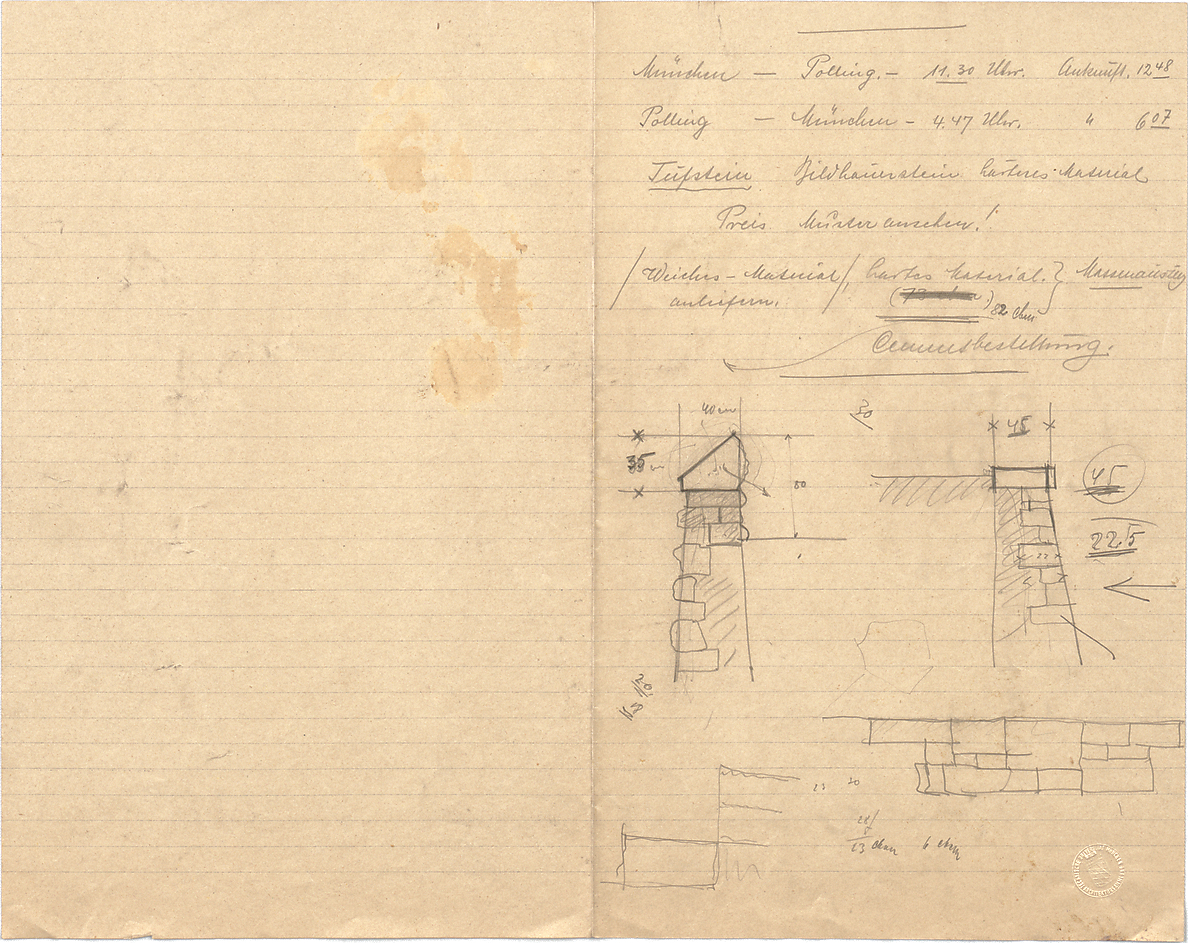 München — Polling. — 11.30 Uhr. Ankunft. 12 48
Polling — München — 4.47 Uhr. " 6 07
Tufstein Bildhauerstein härteres Material
Preis Muster ansehen!
/ Weiches - Material /, hartes Material. } Massenauszug
anliefern. 82 cbm
Cementbestellung.
40 cm
30
45
35 cm
45
80
22 5
22
23 30
28/
23 cbm 6 cbm